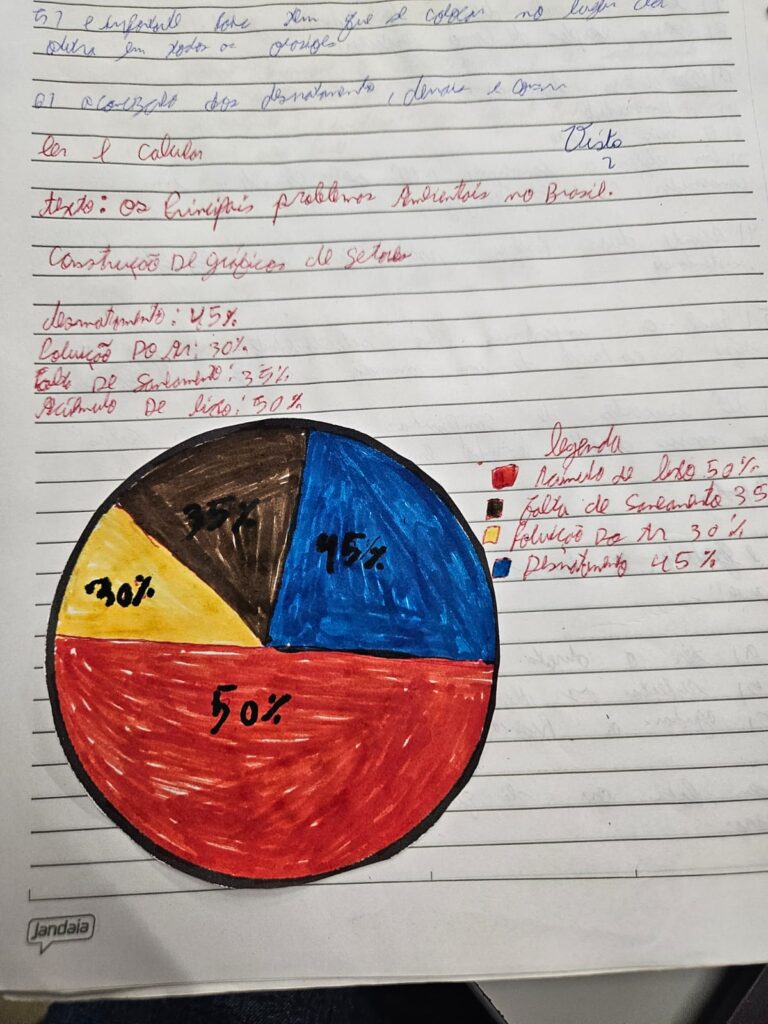 5) é importante tem que se colocar no lugar da
outra em todas as
dos desmatamento,
ler e calcular
Visto
texto: os Principais problemas Ambientais no Brasil.
Construção De gráficos de setores
desmatamento: 45%
Poluição Do Ar: 30%
Falta De Saneamento: 35%
Acúmulo De lixo: 50%
legenda
Acúmulo de lixo 50%
Falta de Saneamento 35
Poluição Do Ar 30%
Desmatamento 45%
35%
45%
30%
50%
Jandaia